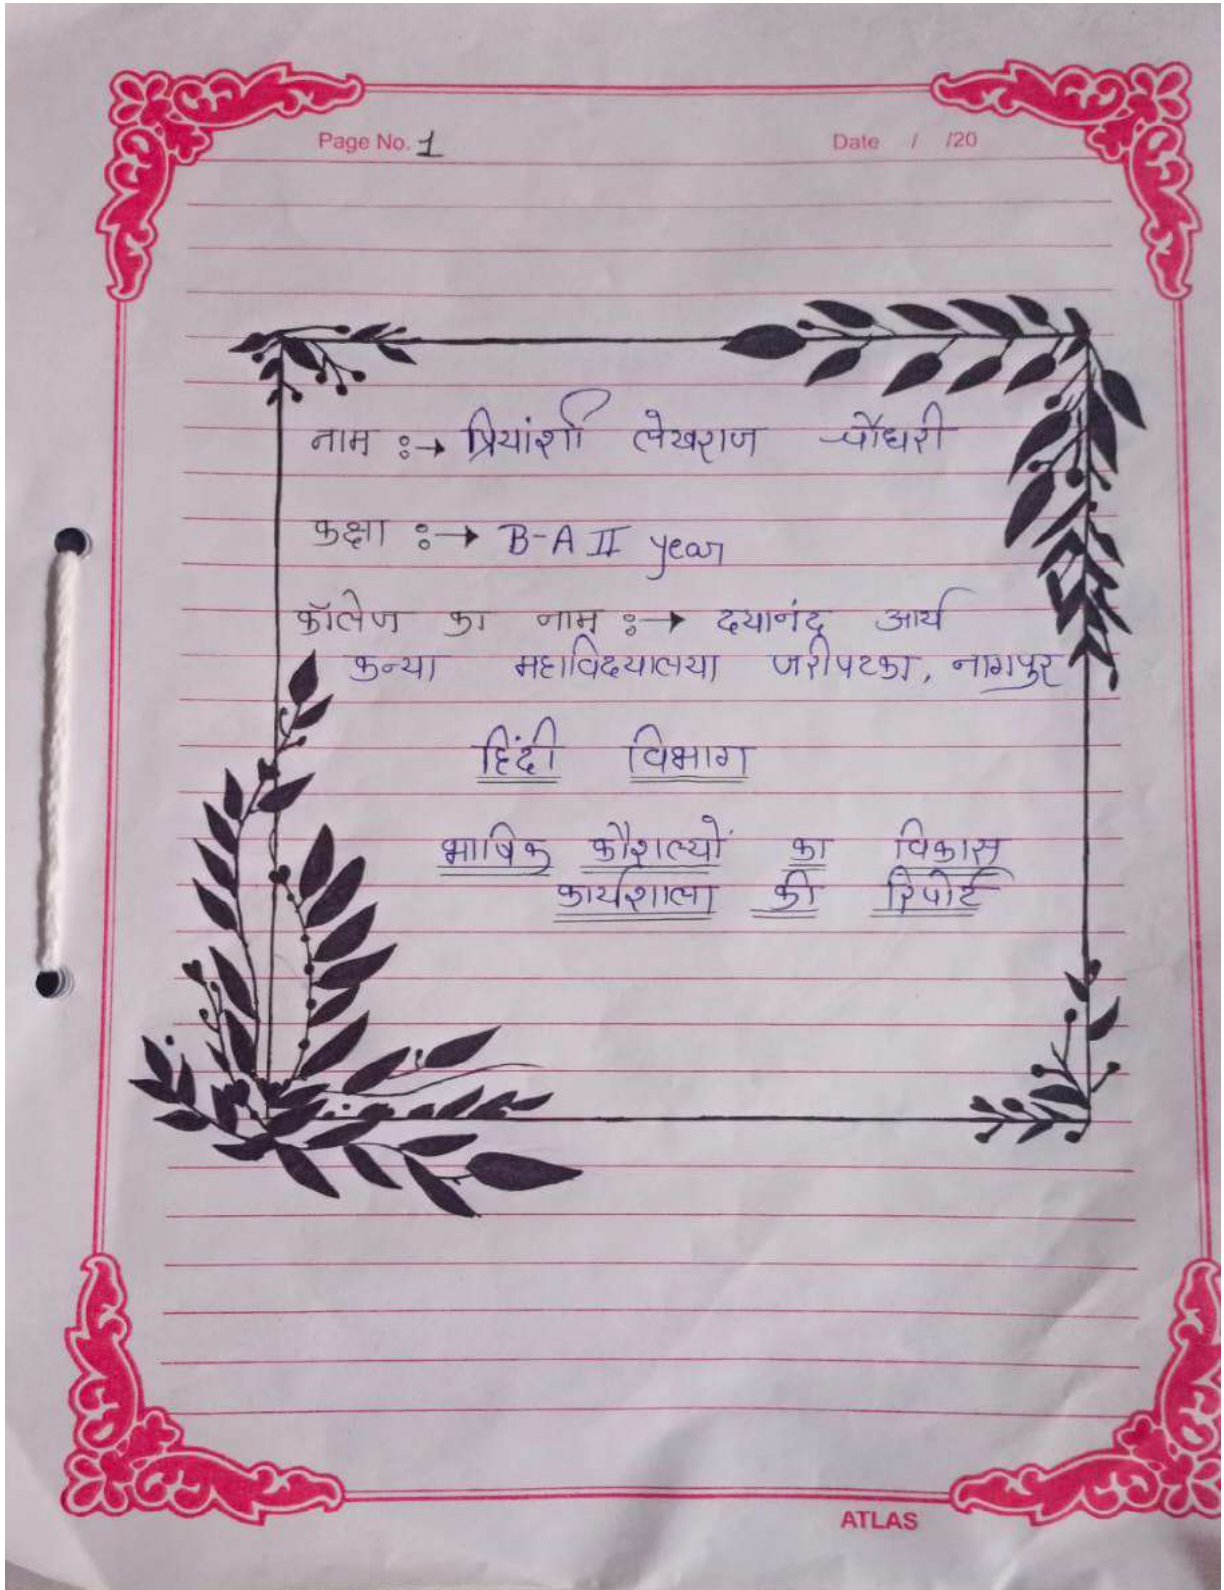 Page No. 1
Date / /20
नाम :→ प्रियांशी लेखराज चौधरी
कक्षा :→ B-A II year
कॉलेज का नाम :→ दयानंद आर्य
कन्या महाविदयालया जरीपटका, नागपुर
हिंदी विभाग
भाषिक कौशल्यों का विकास
कार्यशाला की रिपोर्ट
ATLAS